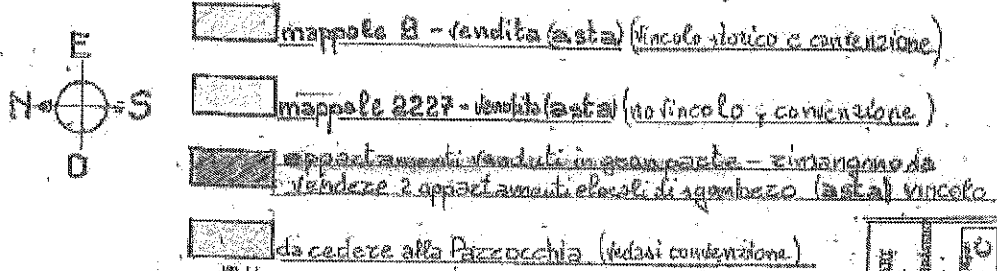 E
N S
O
mappale B - vendita (asta) (vincolo storico e convenzione)
mappale 2227 - vendita (asta) (no vincolo e convenzione)
appartamenti venduti in gran parte - rimangono da
vendere 2 appartamenti e locali di sgombero (asta) vincolo
da cedere alla Parrocchia (vedasi convenzione)